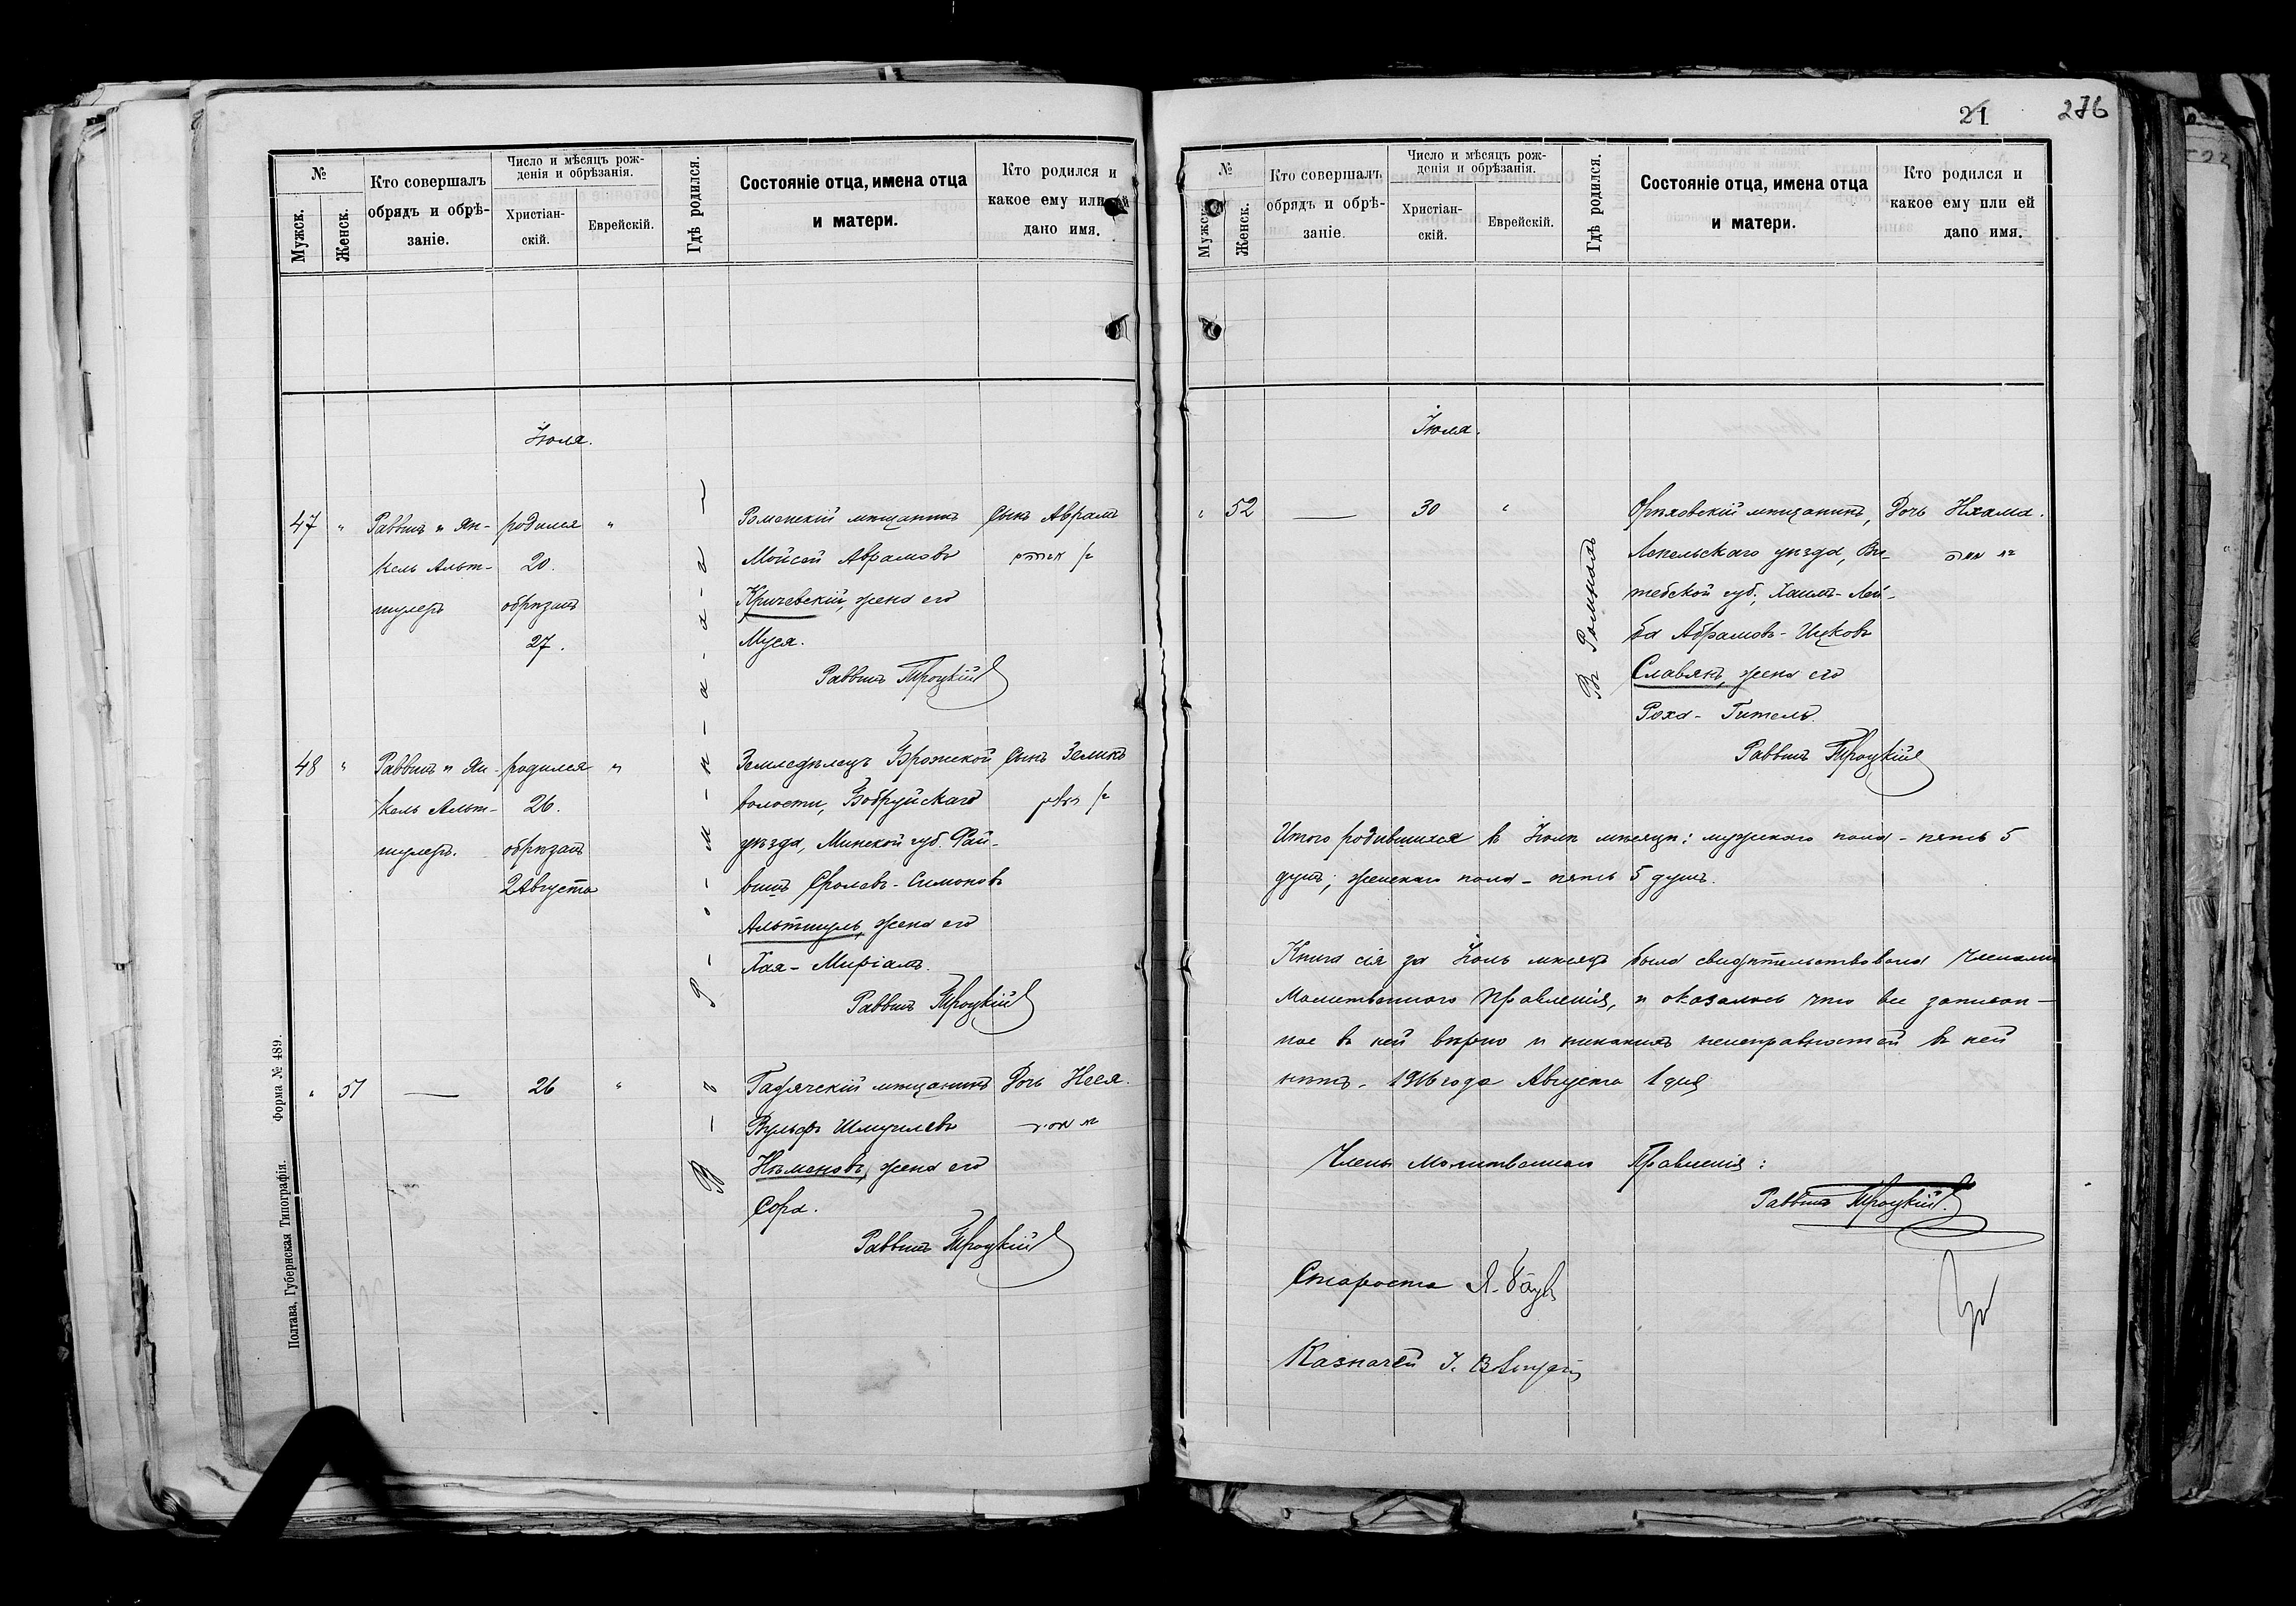 №
Мужск.
Женск.
Кто совершалъ
обрядъ и обрѣ-
заніе.
Число и мѣсяцъ рож-
денія и обрѣзанія.
Христіан-
скій.
Еврейскій.
Гдѣ родился.
Состояніе отца, имена отца
и матери.
Кто родился и
какое ему или ей
дано имя.
Іюля.
47 " Раввинъ и Ян-
кель Альт-
шулеръ
родился "
20.
обрѣзанъ
27.
Роменскій мѣщанинъ
Мойсей Аврамовъ
Кричевскій, жена его
Муся.
Раввинъ Троцкій
Сынъ Аврамъ
48 " Раввинъ и Ян-
кель Альт-
шулеръ.
родился "
26.
обрѣзанъ
2 Августа
Земледѣлецъ Брожской
волости, Бобруйскаго
уѣзда, Минской губ. Фай-
вишъ Сролевъ-Симоновъ
Альтшуль, жена его
Хая-Миріамъ.
Раввинъ Троцкій
Сынъ Зеликъ
" 51 — 26 "
Гадячскій мѣщанинъ
Вульфъ Шмуилевъ
Нѣменовъ, жена его
Сора.
Раввинъ Троцкій
Дочь Неся.
Полтава, Губернская Типографія. Форма № 489.
21 276
№
Мужск.
Женск.
Кто совершалъ
обрядъ и обрѣ-
заніе.
Число и мѣсяцъ рож-
денія и обрѣзанія.
Христіан-
скій.
Еврейскій.
Гдѣ родился.
Состояніе отца, имена отца
и матери.
Кто родился и
какое ему или ей
дано имя.
Іюля.
" 52 — 30 "
Въ Ромнахъ
Орѣховскій мѣщанинъ,
Лепельскаго уѣзда, Ви-
тебской губ., Хаимъ-Лей-
ба Абрамовъ-Ицковъ
Славянъ, жена его
Роха-Гитель.
Раввинъ Троцкій
Дочь Нхама.
Итого родившихся въ Іюлѣ мѣсяцѣ: мужского пола - пять 5
душъ; женскаго пола - пять 5 душъ.
Книга сія за Іюль мѣсяцъ была свидѣтельствована Членами
Молитвеннаго Правленія, и оказалось что все записан-
ное въ ней вѣрно и никакихъ неисправностей въ ней
нѣтъ. 1916 года Августа 1 дня
Члены Молитвеннаго Правленія:
Раввинъ Троцкій.
Староста
Казначей